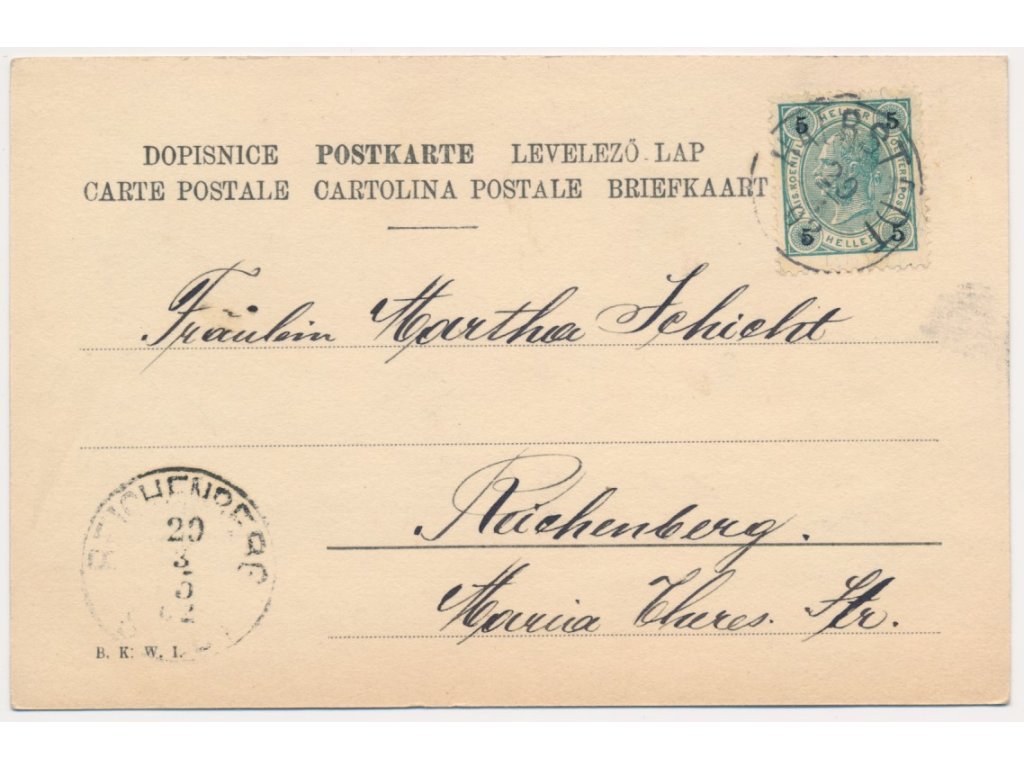 DOPISNICE POSTKARTE LEVELEZŐ-LAP
CARTE POSTALE CARTOLINA POSTALE BRIEFKAART
5 HELLER 5
5 HELLER 5
Fräulein Martha Schicht
Reichenberg.
Maria Theres. Str.
REICHENBERG
20
3
B. K. W. I.